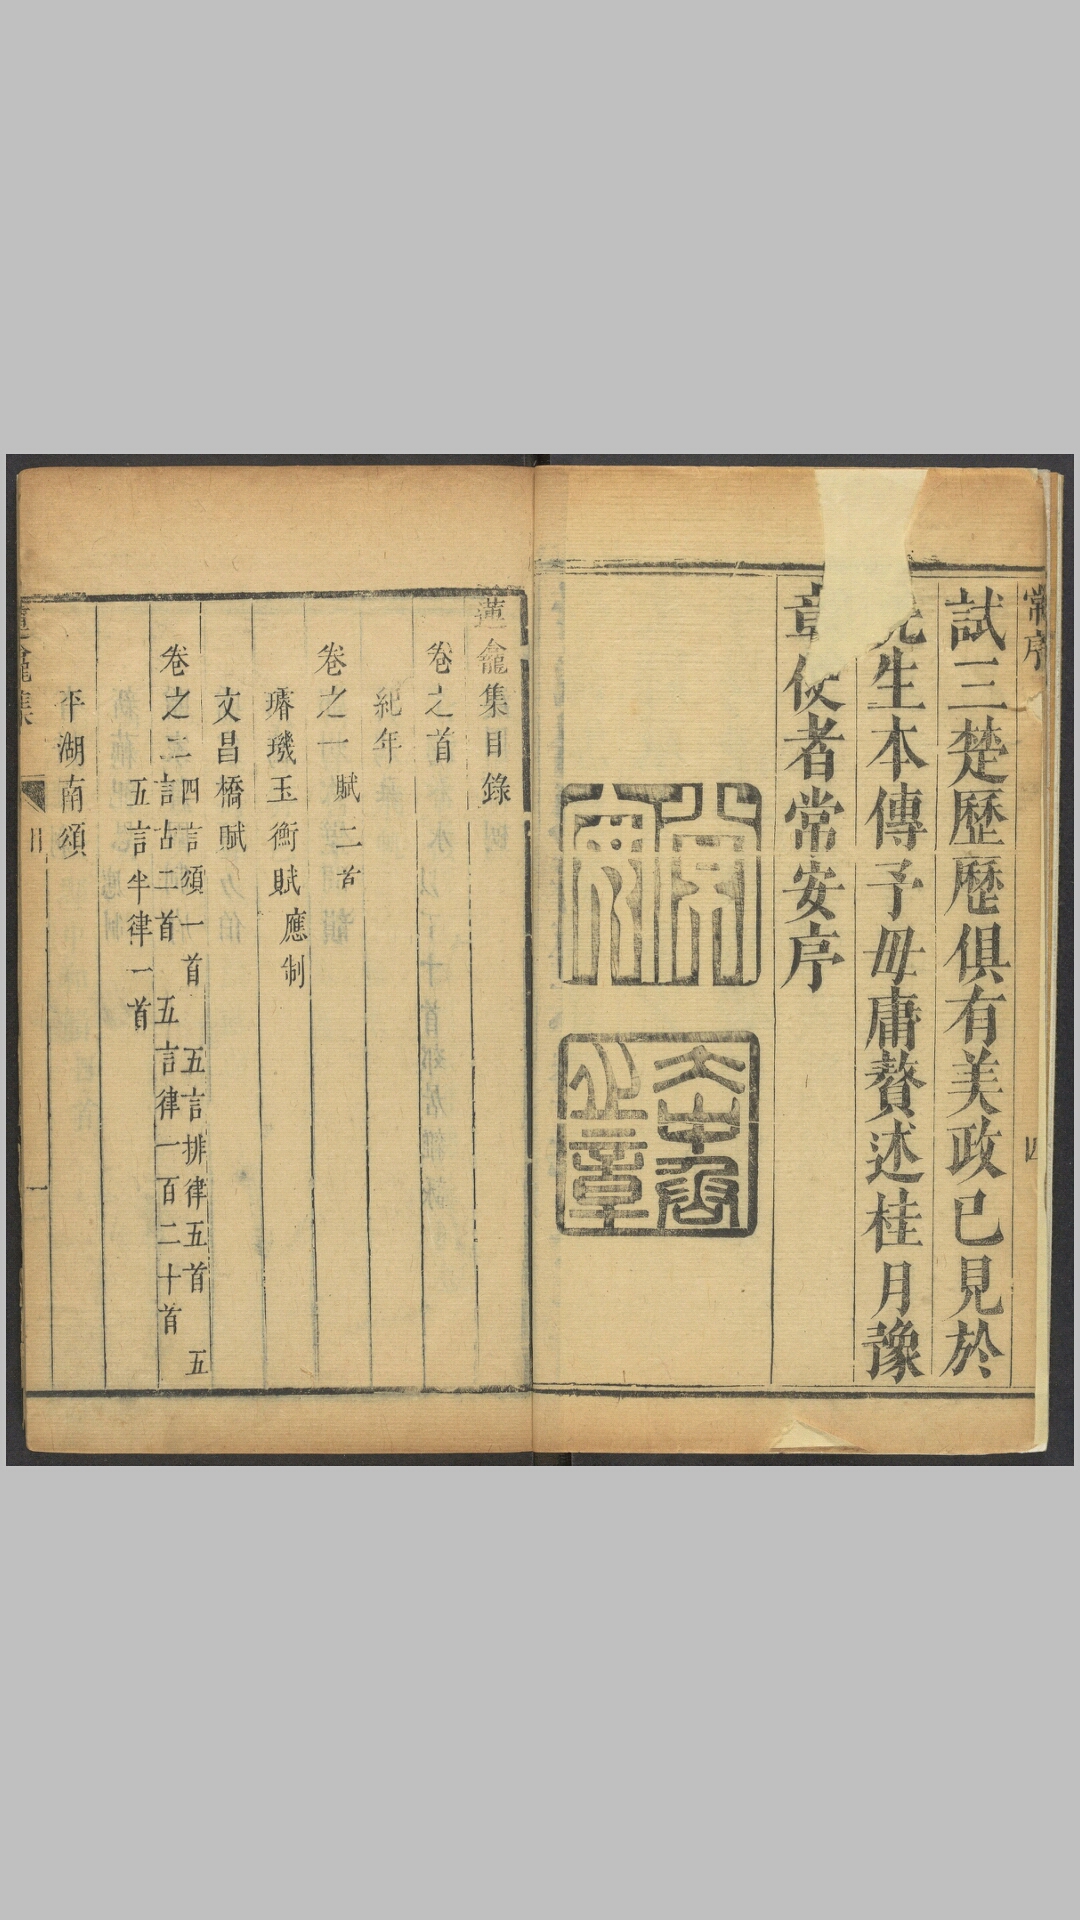 常序
試三楚歷歷俱有美政已見於
先生本傳予毋庸贅述桂月豫
章使者常安序
四
蓮龕集目錄
卷之首
紀年
卷之一 賦二首
璿璣玉衡賦 應制
文昌橋賦
卷之二 四言頌一首 五言排律五首 五
言古二首 五言律一百二十首
五言半律一首
平湖南頌
蓮龕集
目
一